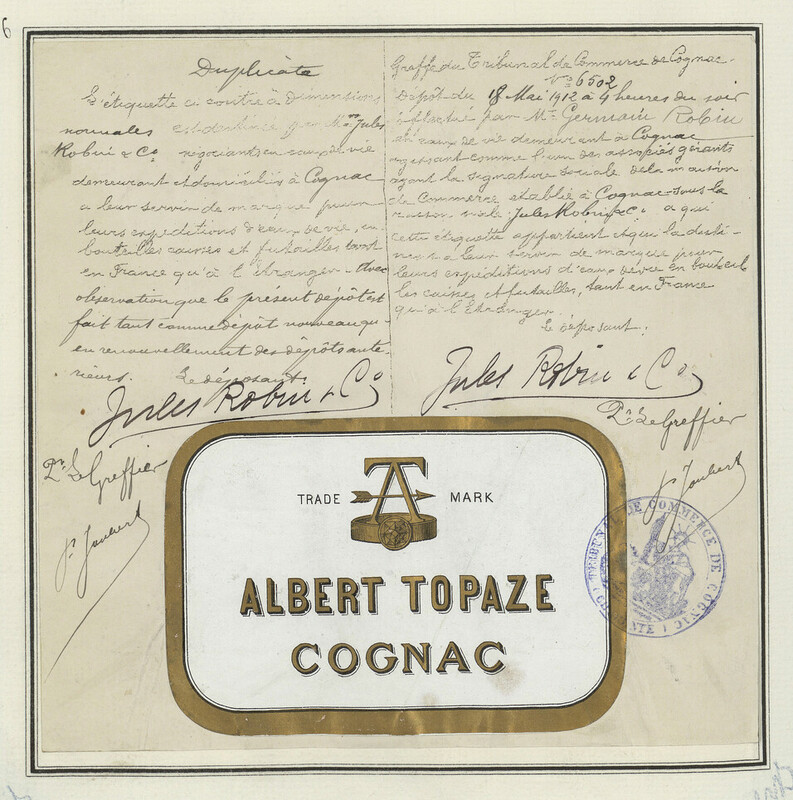 6
Duplicata
L'étiquette ci contre à dimensions
normales est destinée par M.rs Jules
Robin & Co négociants en eaux de vie
demeurant et domiciliés à Cognac
a leur servir de marque pour
leurs expéditions d'eaux de vie, en
bouteilles caisses et futailles tant
en France qu'à l'étranger. Avec
observation que le présent dépôt est
fait tant comme dépôt nouveau qu'
en renouvellement des dépôts anté
rieurs. Le déposant:
Jules Robin & Co
Pr. Le Greffier
J. Joubert
Greffe du Tribunal de Commerce de Cognac.
No 6502
Dépôt du 18 Mai 1912 à 4 heures du soir
Effectué par Mr. Germain Robin
eaux de vie demeurant à Cognac
agissant comme l'un des associés gérants
ayant la signature sociale de la maison
de Commerce établie à Cognac sous la
raison sociale Jules Robin & Co. a qui
cette étiquette appartient et qui la desti-
nent à leur servir de marque pour
leurs expéditions d'eaux de vie en bouteil
les caisses et futailles, tant en France
qu'à l'Etranger.
Le déposant:
Jules Robin & Co
Pr. Le Greffier
J. Joubert
TRADE MARK
ALBERT TOPAZE
COGNAC
TRIBUNAL DE COMMERCE DE COGNAC
(CHARENTE)